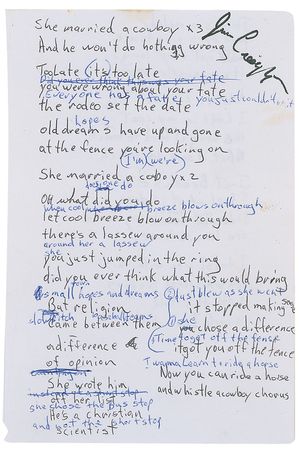 She married a cowboy x3
And he won't do nothing wrong
Too late its too late
you were wrong about your fate
Everyone has a fate you just couldn't
the rodeo set the date
hopes
old dreams have up and gone
at the fence you're looking on
I'm we're
She married a coboy x2
do
Oh what did you do
when cool breeze blows on through
let cool breeze blow on through
there's a lassew around you
around her a lassew
she
you just jumped in the ring
did you ever think what this would bring
small town
small hopes and dreams
But religion
came between them
a difference
of opinion
She wrote him
off her list
she chose the bus stop
He's a christian
and not the short stop
scientist
just blew as she went
it stopped making
she
you chose a difference
Time to get off the fence
it got you off the fence
I wanna learn to ride a horse
Now you can ride a horse
and whistle a cowboy chorus